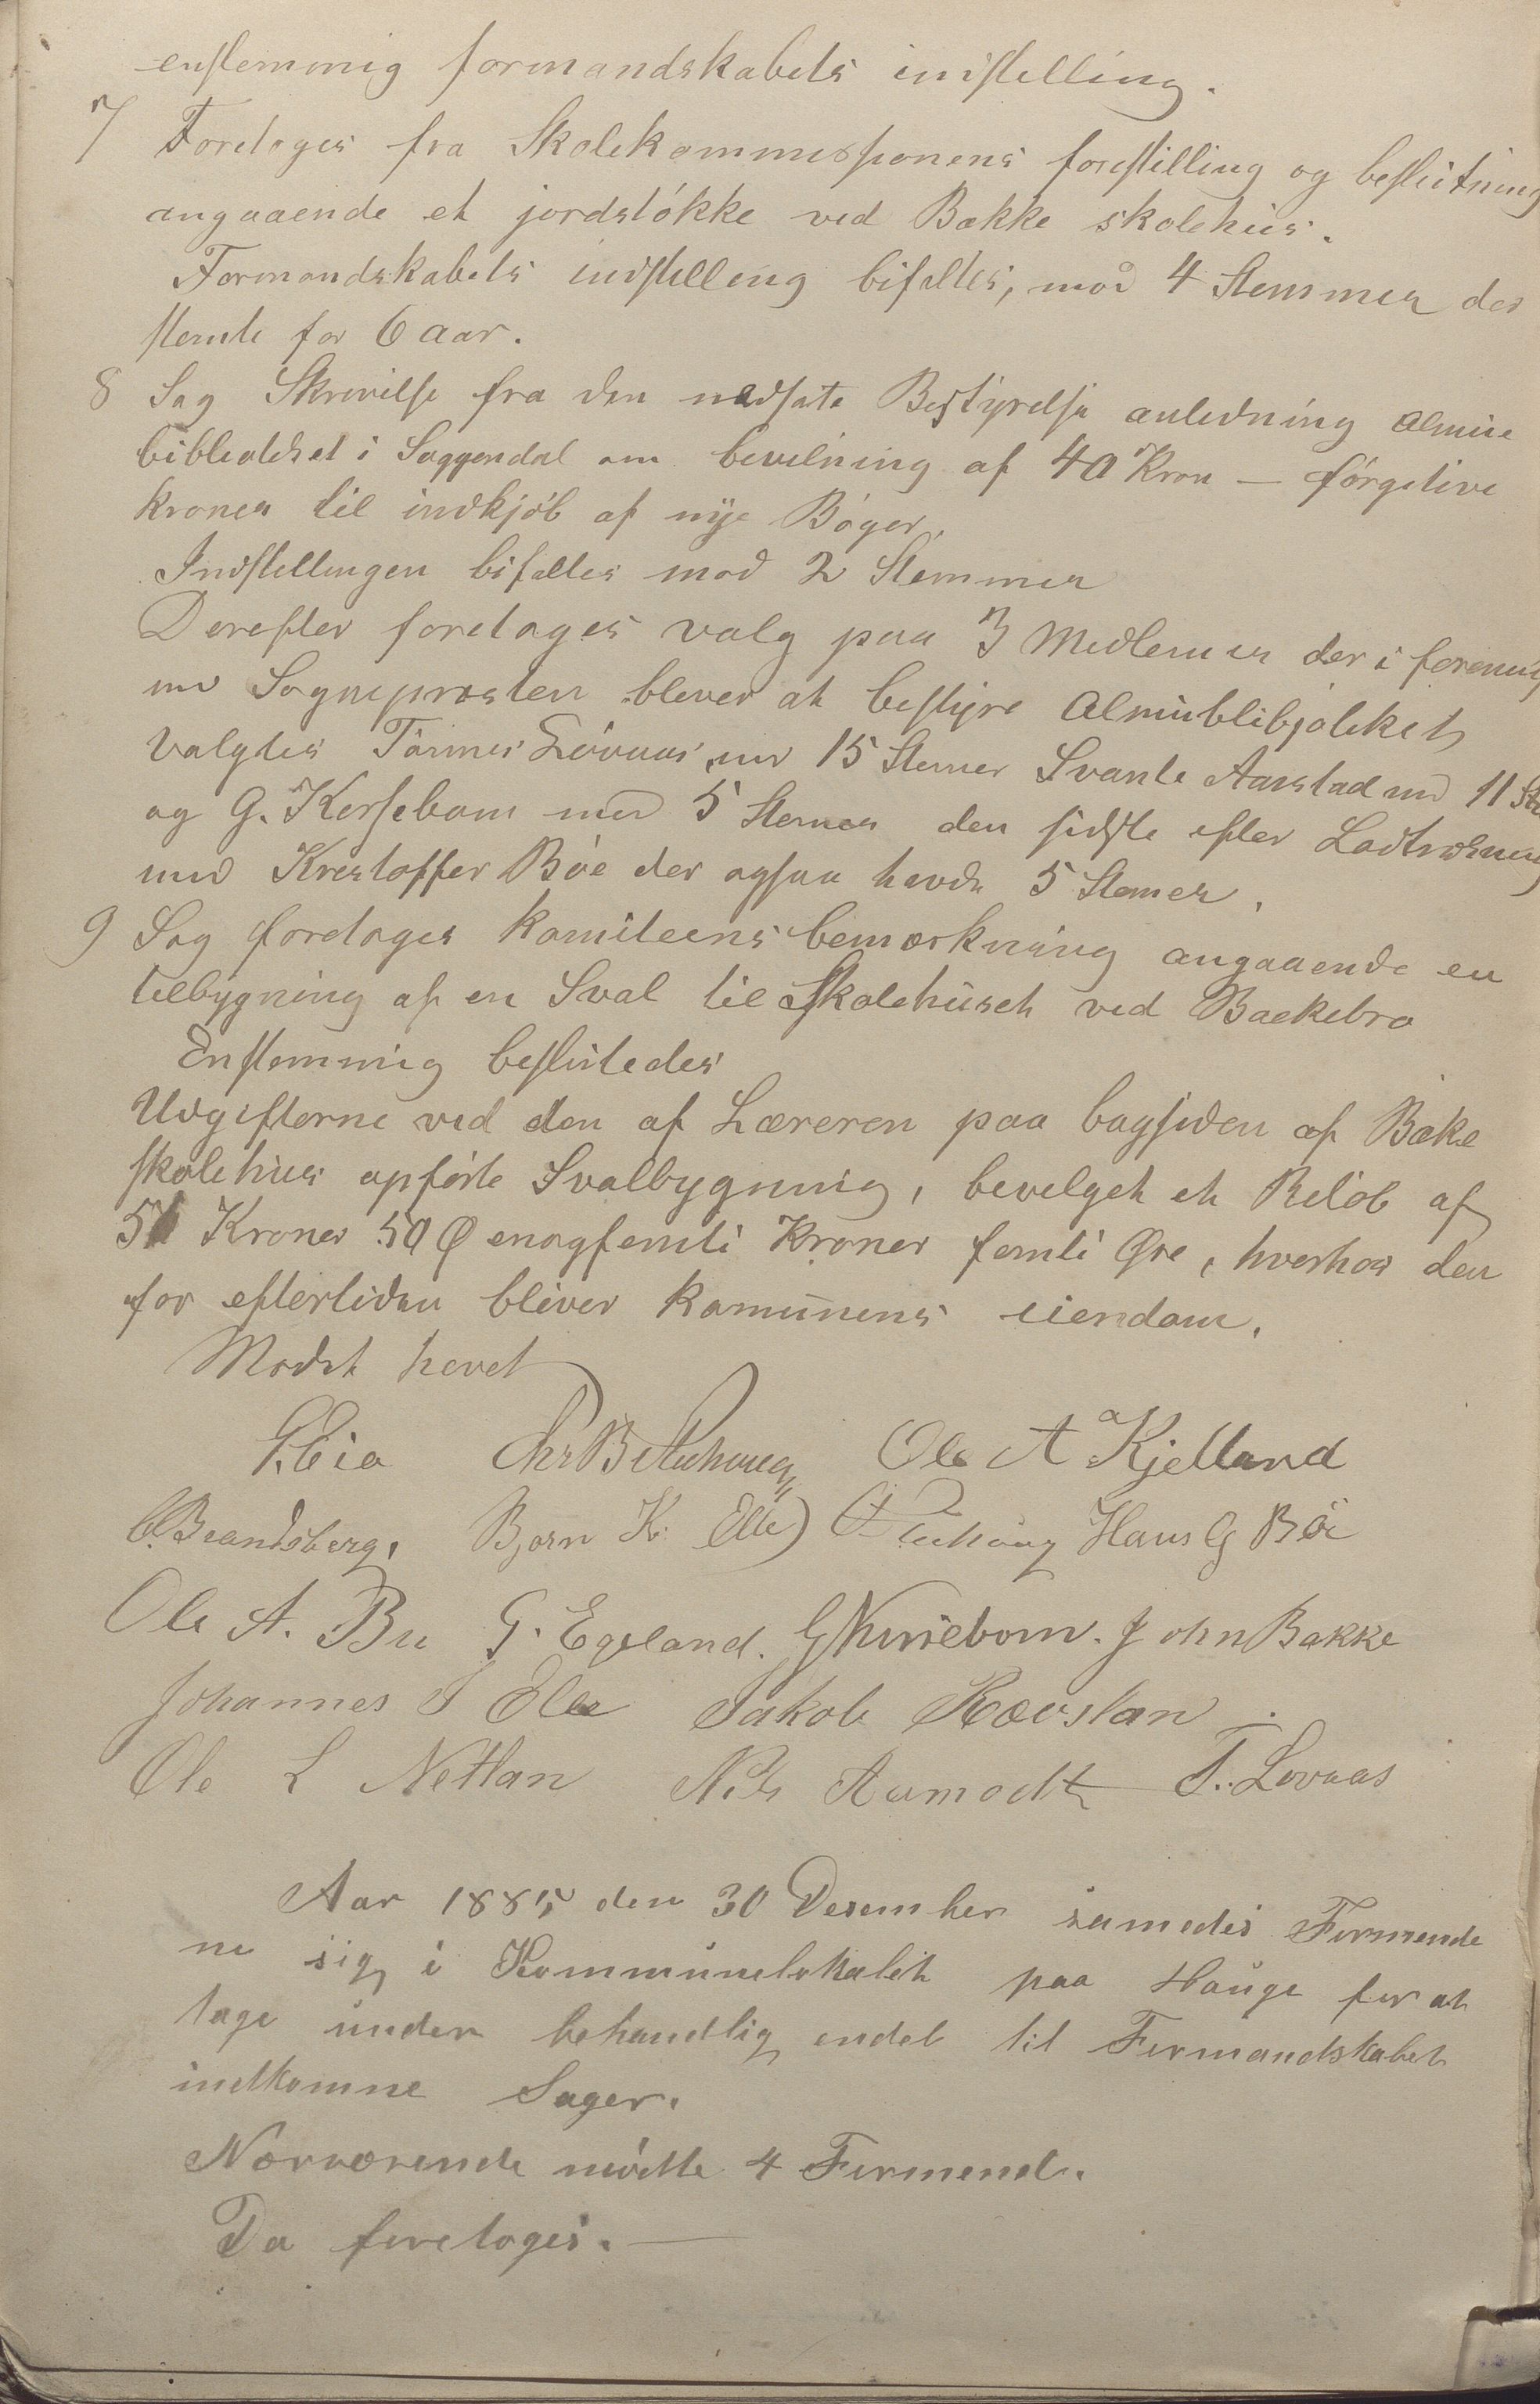 enstemmig formandskabets indstelling.
7 Foretoges fra Skolekommissionens forestilling og beslutning
angaaende et jordstøkke ved Bakke skolehus.
Formandskabets indstelling bifaltes, mod 4 Stemmer der
stemte for 6 aar.
8 Sag Skrivilse fra den nedsate Bestyrelse anledning almue
bibleoteket i Soggendal om bevilning af 40 Kron — førgetive
kroner til indkjøb af nye Bøger.
Indstellingen bifaltes mod 2 Stemmer
Derefter foretoges valg paa 3 Medlemer der i forening
md Sogneprosten blever at bestyre Almueblibjoteket
Valgtes Tønnes Løvaas md 15 Stemer Svante Aarstad md 11 Ste
og G. Kersebom med 5 Stemer den sidste efter Lodtrækning
med Krestoffer Bøe der ogsaa havde 5 Stemer.
9 Sag foretoges komiteens bemærkning angaaende en
tilbygning af en Sval til Skolehuset ved Baekebro
Enstemmig beslutedes
Udgifterne ved den af Læreren paa bagsiden af Bake
skolehus opførte Svalbygning, bevelget et Beløb af
51 Kroner 50 Ø enogfemti Kroner femti Øre, hverhos den
for eftertiden bliver komunens eiendom.
Mødet hevet
G. Eia Chr B Ole A Kjelland
Brandsberg. Bjørn K. Elle Hans G Bøe
Ole A. Bu G. Egeland. G Kursebom. John Bakke
Johannes J Elle Jakob Rævslan
Ole L Netlan Nils Aamodt T. Lovaas
Aar 1885 den 30 Desember samedes Formende
ne sig i Kommunelokalet paa Hauge for at
tage under behandlig endel til Formandskabet
indkomne Sager.
Nærværende møtte 4 Formend.
Da foretoges. —